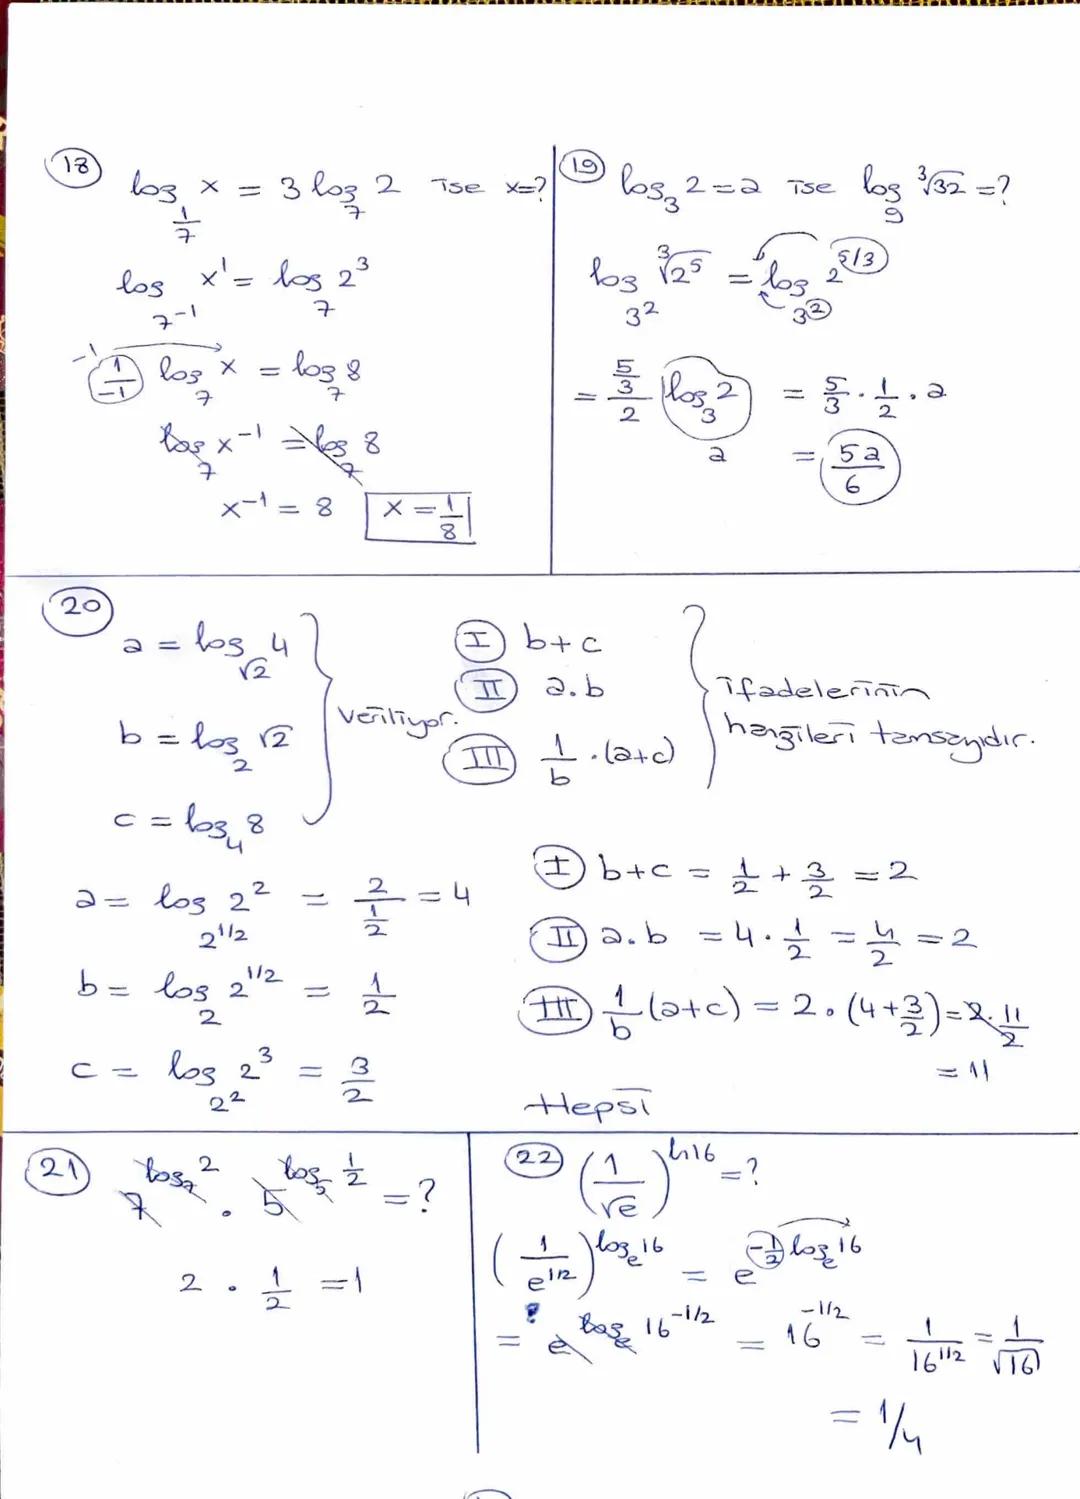 18 log_{1/7} x = 3 log_7 2 ise x=?
log_{7^{-1}} x^1 = log_7 2^3
-1 (1/-1) log_7 x = log_7 8
log_7 x^{-1} = log_7 8
x^{-1} = 8 x = 1/8
19 log_3 2 = a ise log_9 ∛32 = ?
log_{3^2} ∛2^5 = log_{3^2} 2^{5/3}
= (5/3)/2 log_3 2 = 5/3 . 1/2 . a
a = 5a/6
20
a = log_{√2} 4
b = log_2 √2
c = log_4 8
veriliyor.
I b+c
II a.b
III 1/b .(a+c)
ifadelerinin
hangileri tamsayıdır.
a = log_{2^{1/2}} 2^2 = 2/(1/2) = 4
b = log_2 2^{1/2} = 1/2
c = log_{2^2} 2^3 = 3/2
I b+c = 1/2 + 3/2 = 2
II a.b = 4 . 1/2 = 4/2 = 2
III 1/b (a+c) = 2 . (4+3/2) = 2 . 11/2
= 11
Hepsi
21 7^{log_7 2} . 5^{log_5 1/2} = ?
2 . 1/2 = 1
22 (1/√e)^{ln16} = ?
(1/e^{1/2})^{log_e 16} = e^{-1/2 log_e 16}
= e^{log_e 16^{-1/2}} = 16^{-1/2} = 1/16^{1/2} = 1/√16
= 1/4